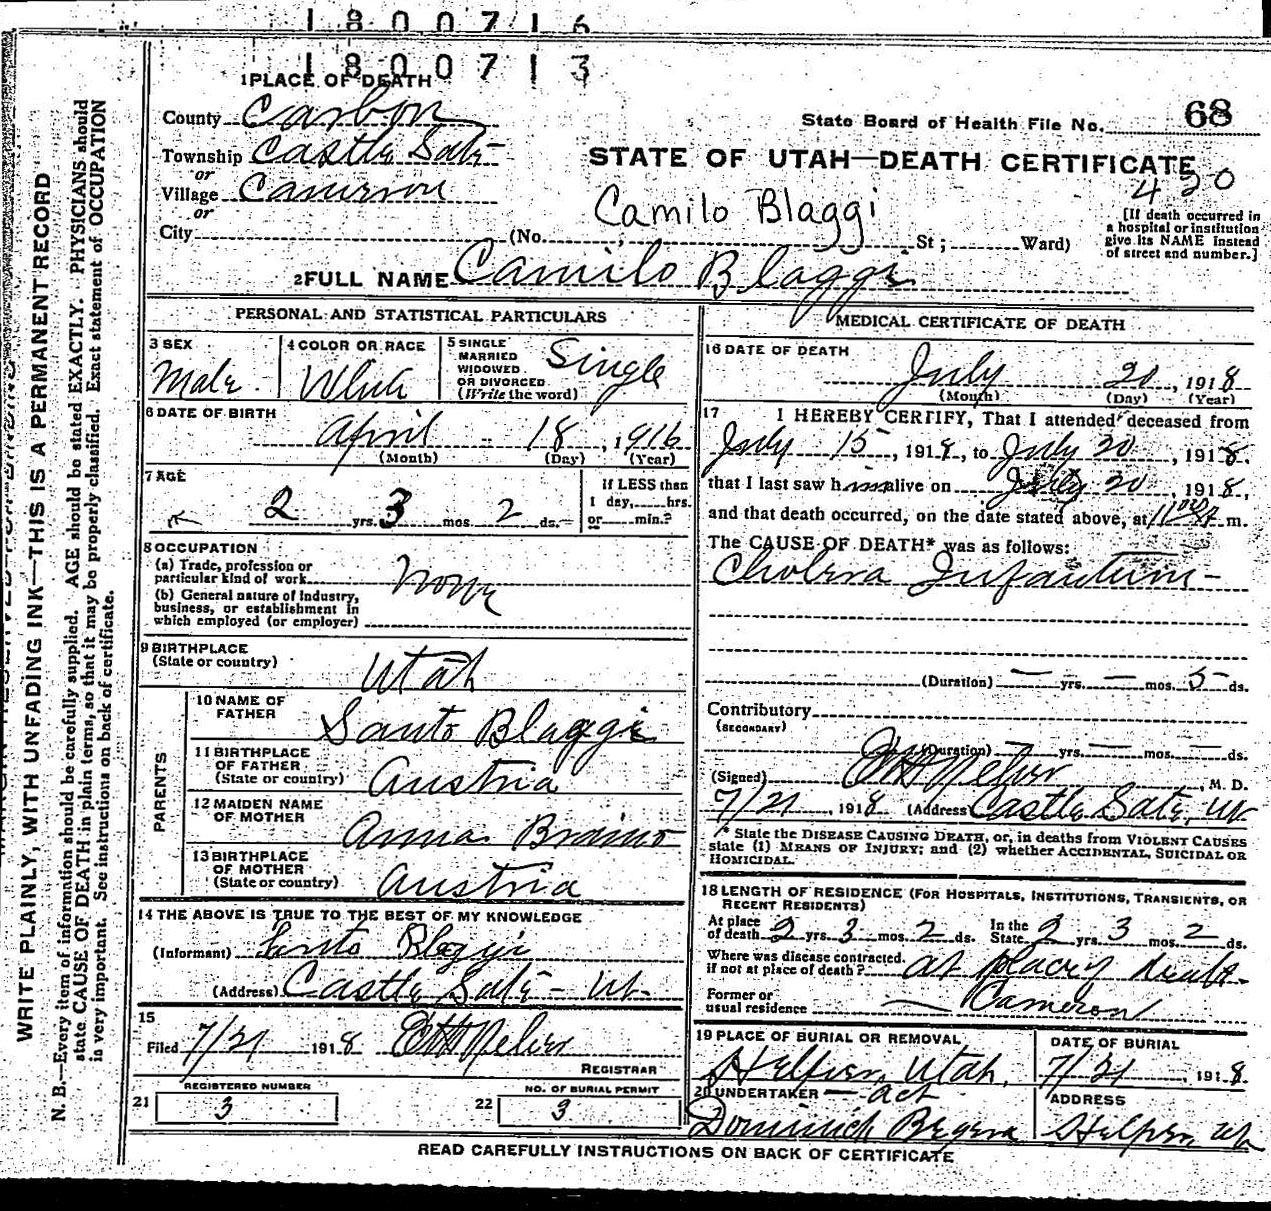 1800716
1800713
1 PLACE OF DEATH
County Carbon
State Board of Health File No. 68
Township Castle Gate
STATE OF UTAH—DEATH CERTIFICATE
or
Village Cameron
420
or
Camilo Blaggi
[If death occurred in a hospital or institution give its NAME instead of street and number.]
City (No. St; Ward)
2 FULL NAME Camilo Blaggi
PERSONAL AND STATISTICAL PARTICULARS
3 SEX
Male
4 COLOR OR RACE
White
5 SINGLE
MARRIED
WIDOWED
OR DIVORCED
(Write the word)
Single
6 DATE OF BIRTH
April 18, 1916
(Month) (Day) (Year)
7 AGE
2 yrs. 3 mos. 2 ds.
If LESS than
1 day, hrs.
or min.?
8 OCCUPATION
(a) Trade, profession or
particular kind of work None
(b) General nature of industry,
business, or establishment in
which employed (or employer)
9 BIRTHPLACE
(State or country)
Utah
PARENTS
10 NAME OF
FATHER
Santo Blaggi
11 BIRTHPLACE
OF FATHER
(State or country)
Austria
12 MAIDEN NAME
OF MOTHER
Anna
13 BIRTHPLACE
OF MOTHER
(State or country)
Austria
14 THE ABOVE IS TRUE TO THE BEST OF MY KNOWLEDGE
(Informant) Santo Blaggi
(Address) Castle Gate - Ut.
15
Filed 7/21 1918
REGISTRAR
REGISTERED NUMBER
21 3
NO. OF BURIAL PERMIT
22 3
MEDICAL CERTIFICATE OF DEATH
16 DATE OF DEATH
July 20, 1918
(Month) (Day) (Year)
17 I HEREBY CERTIFY, That I attended deceased from
July 15, 1918, to July 20, 1918.
that I last saw him alive on July 20, 1918,
and that death occurred, on the date stated above, at m.
The CAUSE OF DEATH* was as follows:
Cholera Infantum-
(Duration) — yrs. — mos. 5 ds.
Contributory
(SECONDARY)
(Duration) — yrs. — mos. — ds.
(Signed) , M. D.
7/21, 1918 (Address) Castle Gate, Ut
* State the DISEASE CAUSING DEATH, or, in deaths from VIOLENT CAUSES
state (1) MEANS OF INJURY; and (2) whether ACCIDENTAL, SUICIDAL OR
HOMICIDAL.
18 LENGTH OF RESIDENCE (FOR HOSPITALS, INSTITUTIONS, TRANSIENTS, OR
RECENT RESIDENTS)
At place
of death 2 yrs. 3 mos. 2 ds.
In the
State 2 yrs. 3 mos. 2 ds.
Where was disease contracted,
if not at place of death? at place of death-
Former or
usual residence — Cameron
19 PLACE OF BURIAL OR REMOVAL
Helper, Utah.
DATE OF BURIAL
7/21, 1918.
20 UNDERTAKER — Act
Dominick
ADDRESS
Helper, Ut
READ CAREFULLY INSTRUCTIONS ON BACK OF CERTIFICATE
WRITE PLAINLY, WITH UNFADING INK—THIS IS A PERMANENT RECORD
N. B.—Every item of information should be carefully supplied. AGE should be stated EXACTLY. PHYSICIANS should
state CAUSE OF DEATH in plain terms, so that it may be properly classified. Exact statement of OCCUPATION
is very important. See instructions on back of certificate.